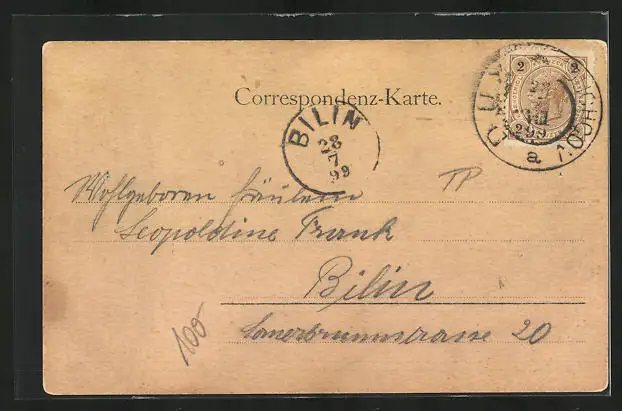 Correspondenz-Karte.
2 2
DUX
99
a
BILIN
28
7
99
TP
Wohlgeboren Fräulein
Leopoldine Frank
Bilin
Sauerbrunnstrasse 20
100